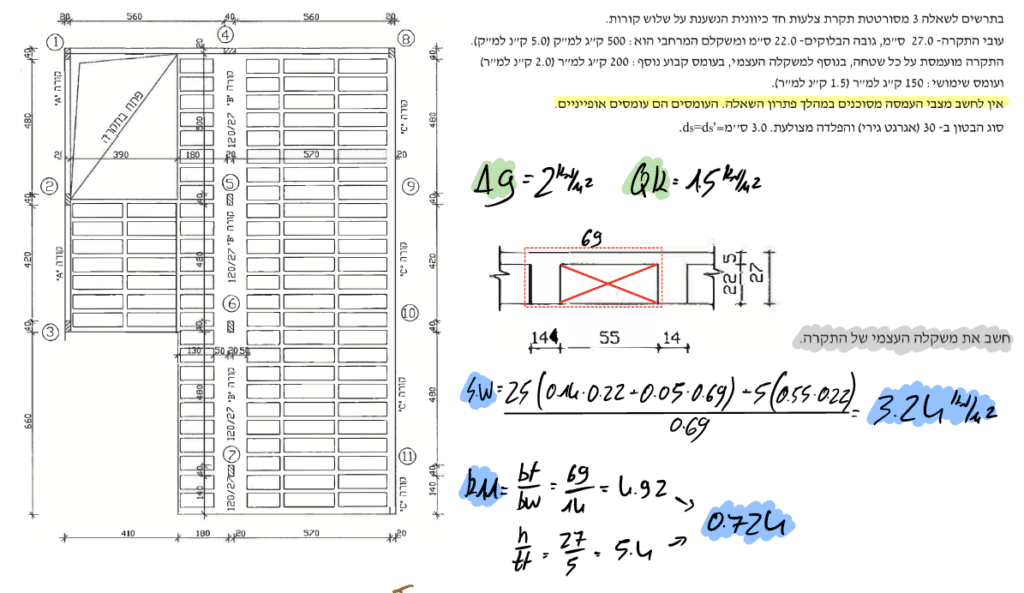 בתרשים לשאלה 3 מסורטטת תקרת צלעות חד כיוונית הנשענת על שלוש קורות.
עובי התקרה- 27.0 ס״מ, גובה הבלוקים- 22.0 ס״מ ומשקלם המרחבי הוא : 500 ק״ג למ״ק (5.0 ק״נ למ״ק).
התקרה מועמסת על כל שטחה, בנוסף למשקלה העצמי, בעומס קבוע נוסף : 200 ק״ג למ״ר (2.0 ק״נ למ״ר)
ועומס שימושי : 150 ק״ג למ״ר (1.5 ק״נ למ״ר).
אין לחשב מצבי העמסה מסוכנים במהלך פתרון השאלה. העומסים הם עומסים אופייניים.
סוג הבטון ב- 30 (אגרגט גירי) והפלדה מצולעת. 3.0 ס״מ=ds=ds'.
Δg = 2 kN/m2 Qk = 1.5 kN/m2
69
5
22
27
14 55 14
חשב את משקלה העצמי של התקרה.
S.W = 25(0.14·0.22+0.05·0.69)+5(0.55·0.22) = 3.24 kN/m2
0.69
kM = bf/bw = 69/14 = 4.92
0.724
h/tf = 27/5 = 5.4
20 560 40 560 20
1 4 8
קורה "A"
קורה "B" 120/27
קורה "C"
פתח בתקרה
40 480 40 420 40 660
500
390 180 20 570 20
2 5 9
קורה "A"
קורה "B" 120/27
קורה "C"
420
3 6 10
130 50 20 50
קורה "B" 120/27
קורה "C"
480
7 11
120/27
קורה "C"
40 140
410 180 20 570 20